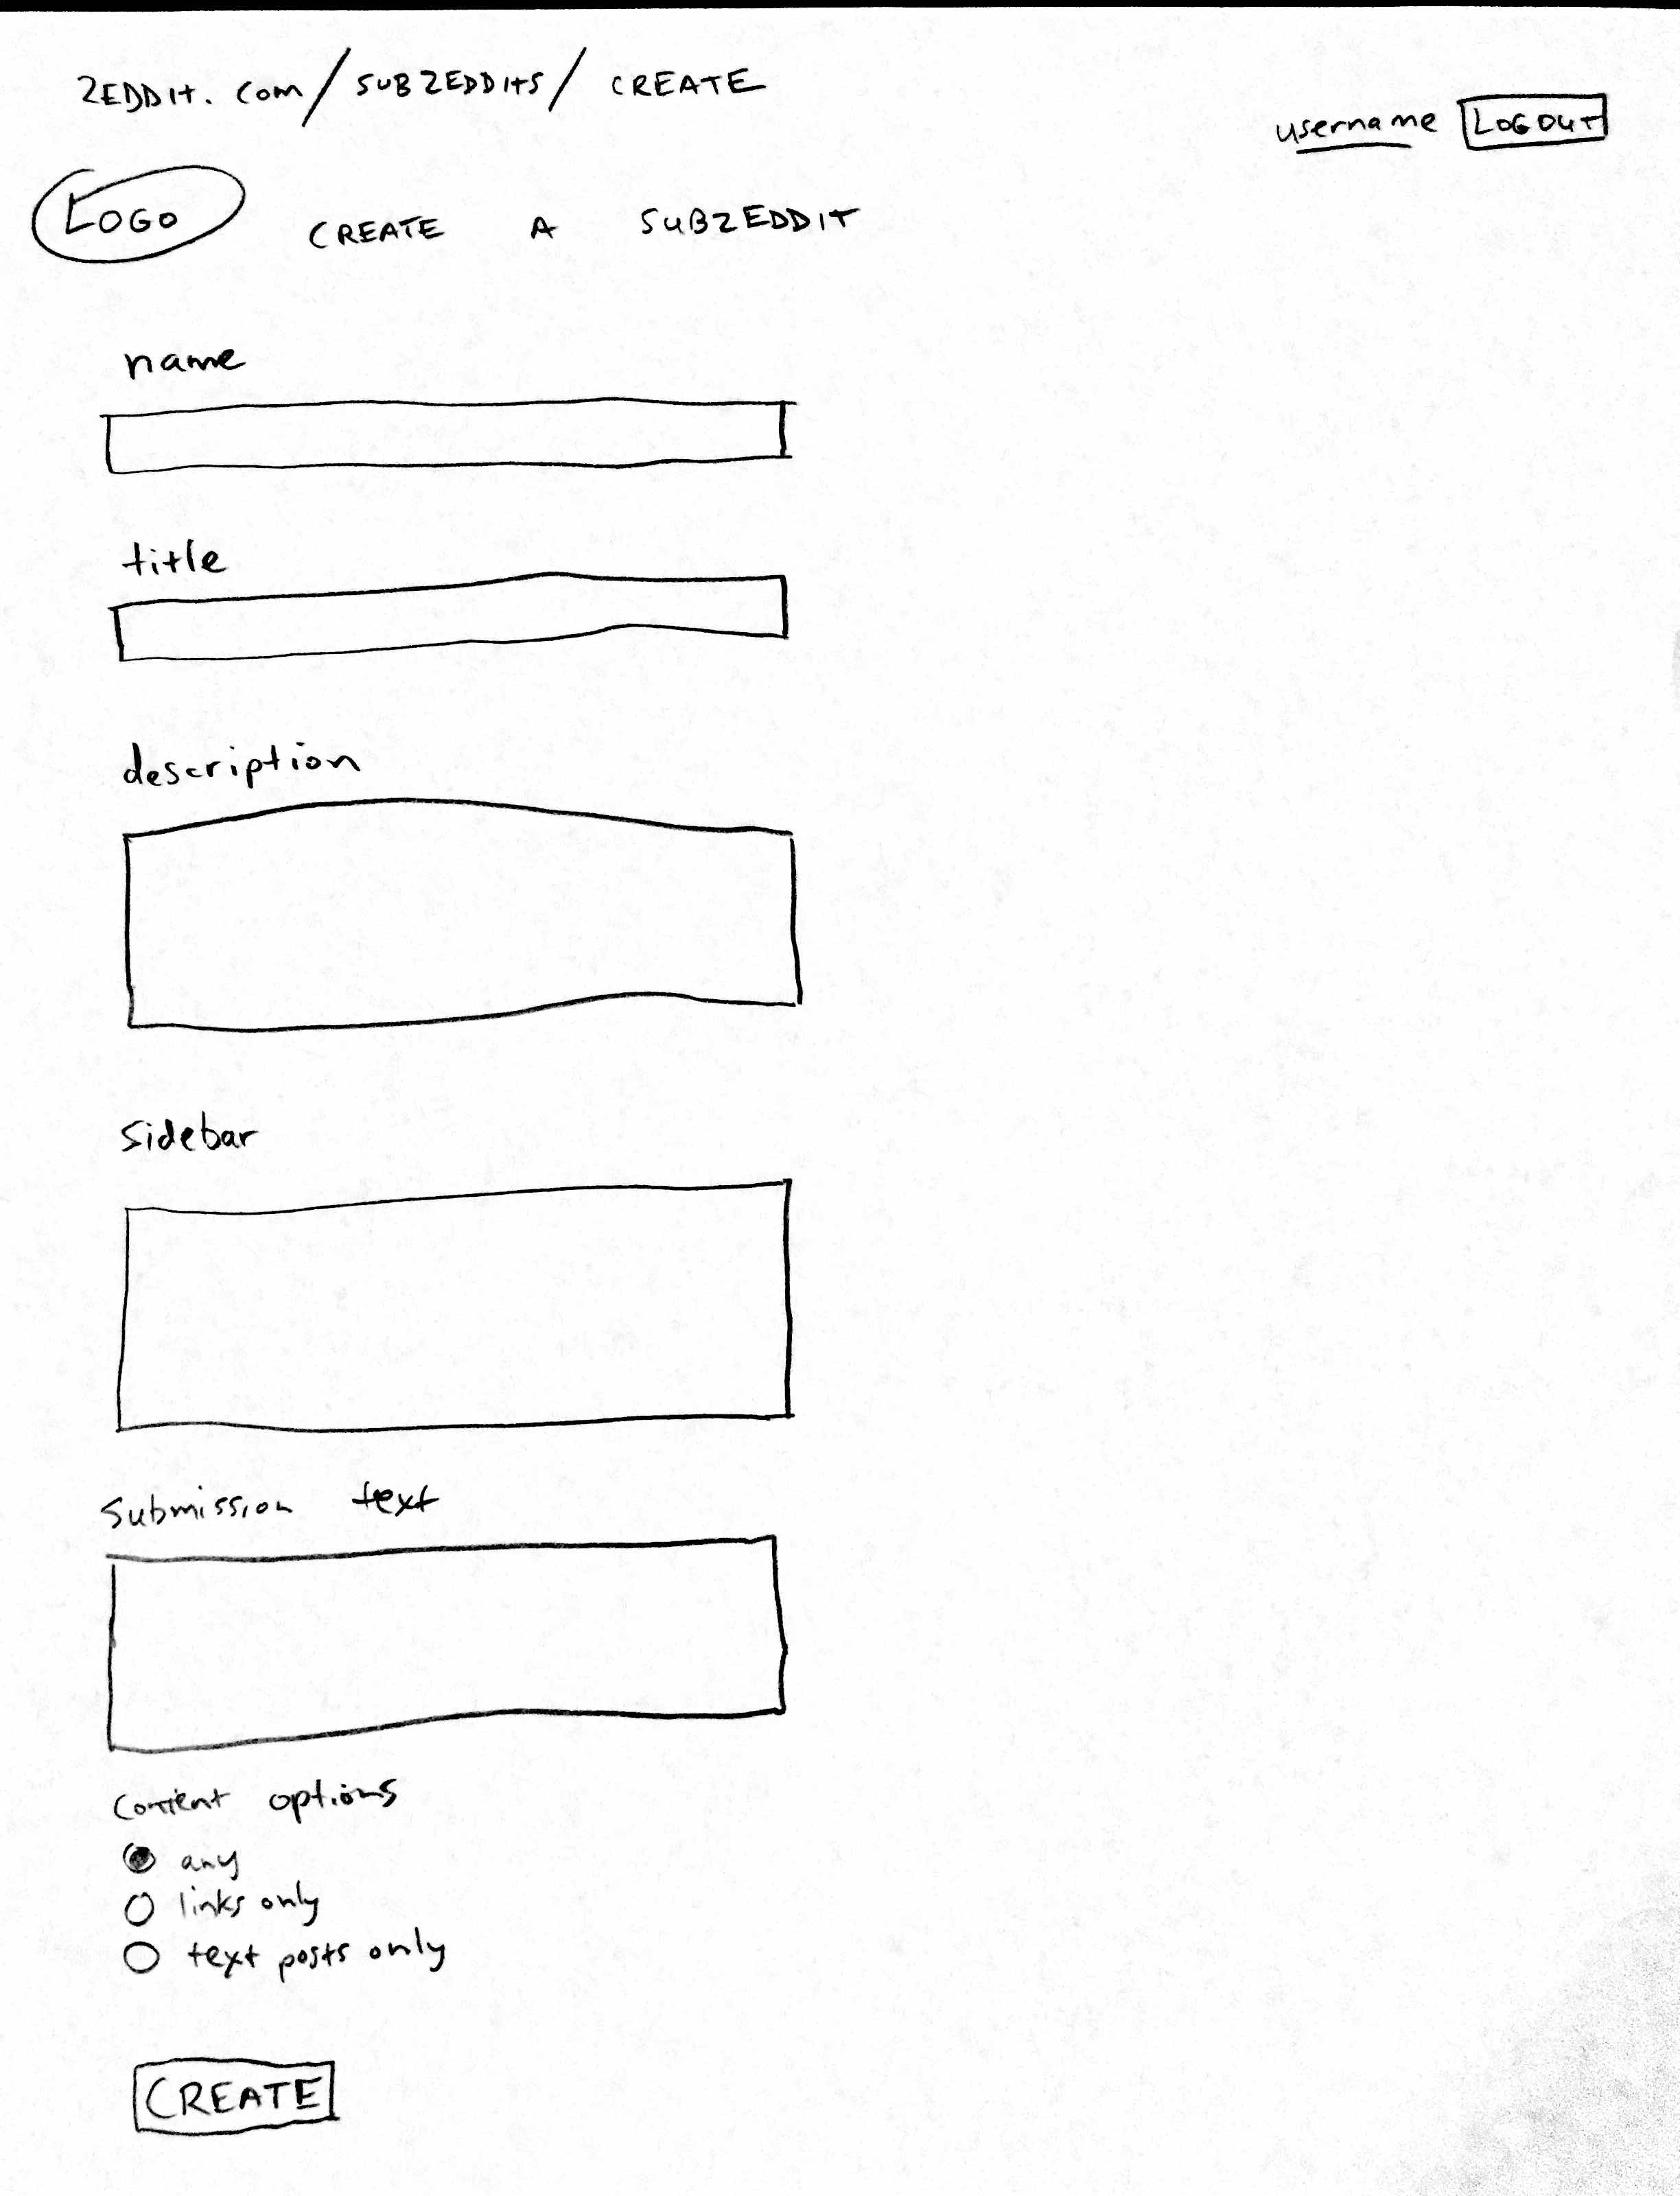 ZEDDIT.COM/SUBZEDDITS/CREATE
username LOGOUT
LOGO CREATE A SUBZEDDIT
name
title
description
sidebar
submission text
content options
any
links only
text posts only
CREATE